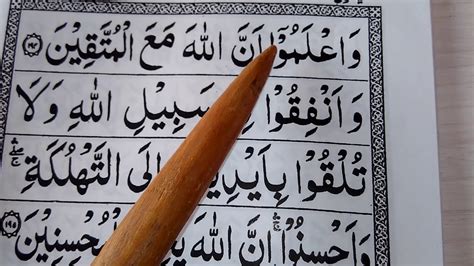 وَاعْلَمُوْٓا اَنَّ اللّٰهَ مَعَ الْمُتَّقِيْنَ ﴿۱۹۴﴾
وَاَنْفِقُوْا سَبِيْلِ اللّٰهِ وَلَا
تُلْقُوْا بِاَيْدِيْ اِلَى التَّهْلُكَةِ
وَاَحْسِنُوْا اِنَّ اللّٰهَ الْمُحْسِنِيْنَ ﴿۱۹۵﴾